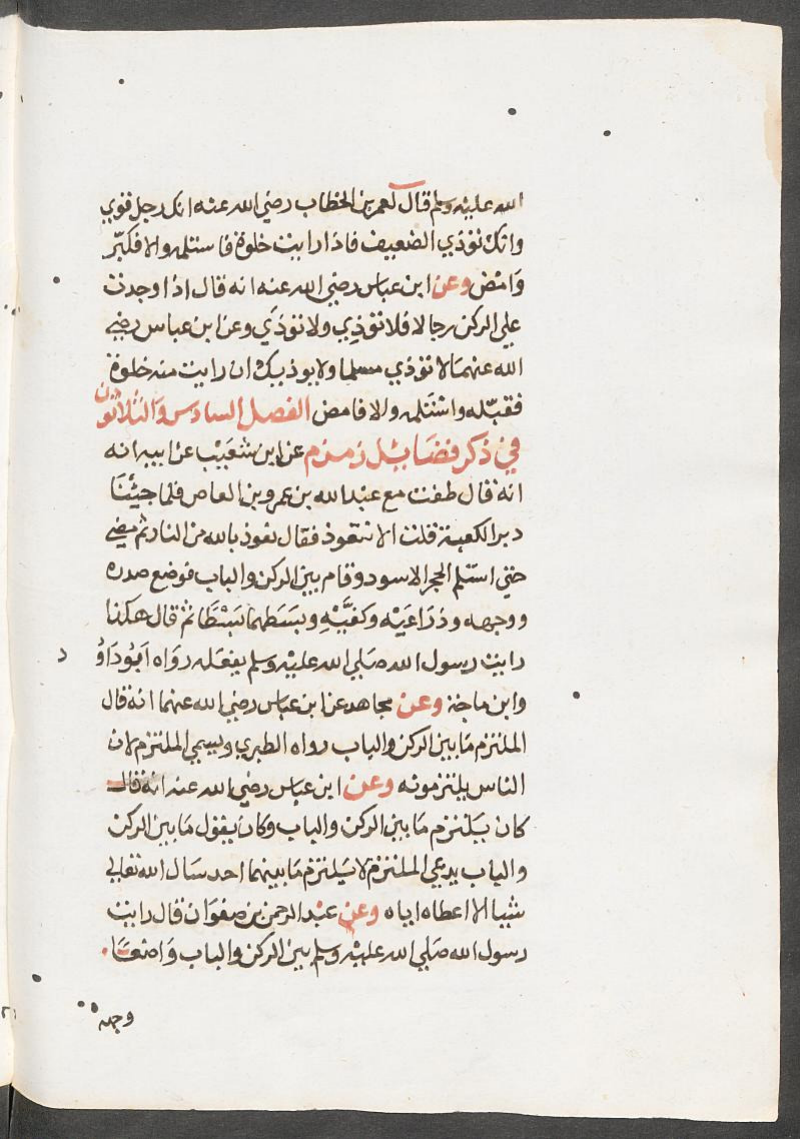 الله عليه وسلم قال لعمر بن الخطاب رضي الله عنه انك رجل قوي
وانك توذي الضعيف فاذا رايت خلوة فاستلمه والا فكبّر
وَامْضِ وعن ابن عباس رضي الله عنه انه قال اذا وجدت
علي الركن رجالا فلا توذِي ولا توذَي وعن ابن عباس رضي
الله عنهما لا توذي مسلما ولا يوذيك ان رايت منه خلوة
فقبّله واسْتَلمه والا فامض الفصل السادس والثلاثون
في ذكر فضايل زمزم عن ابن شعَيْب عن ابيه انه
انه قال طفت مع عبد الله بن عمرو بن العاص فلما جيْنَا
دبر الكعبة قلت الا نتعوذ فقال نعوذ بالله من النار ثم مضي
حتي استلم الحجر الاسود وقام بين الركن والباب فوضع صدره
ووجهه وذرَاعَيْه وكفَّيْهِ وبَسَطهما بَسْطًا ثم قال هكذا
رايت رسول الله صَلي الله عليْه وسلم يفعَله روَاه اَبُو دَاوُد
وابن ماجة وعن مجاهد عن ابن عباس رضي الله عنهما انه قال
الملتزم مَا بين الركن والباب رواه الطبري ويسمي الملتزم لان
الناس يلتزمونه وعن ابن عباس رضي الله عنه انه قال
كان يَلتزم مَا بين الركن والباب وكان يقول مَا بين الركن
والباب يدعي الملتزم لا يَلتزم مَا بينهما احد سَال الله تعالي
شيا الا اعطاه اياه وعن عبْد الرحمن بن صفوَان قال رايت
رسول الله صَلي الله عليْه وسلم بين الركن والباب وَاضعًا
وجهه